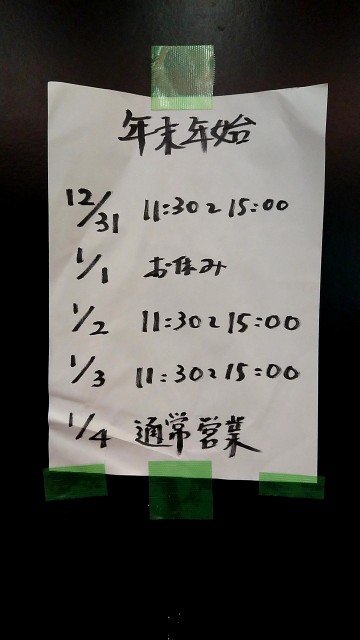 年末年始
12/31 11:30〜15:00
1/1 お休み
1/2 11:30〜15:00
1/3 11:30〜15:00
1/4 通常営業